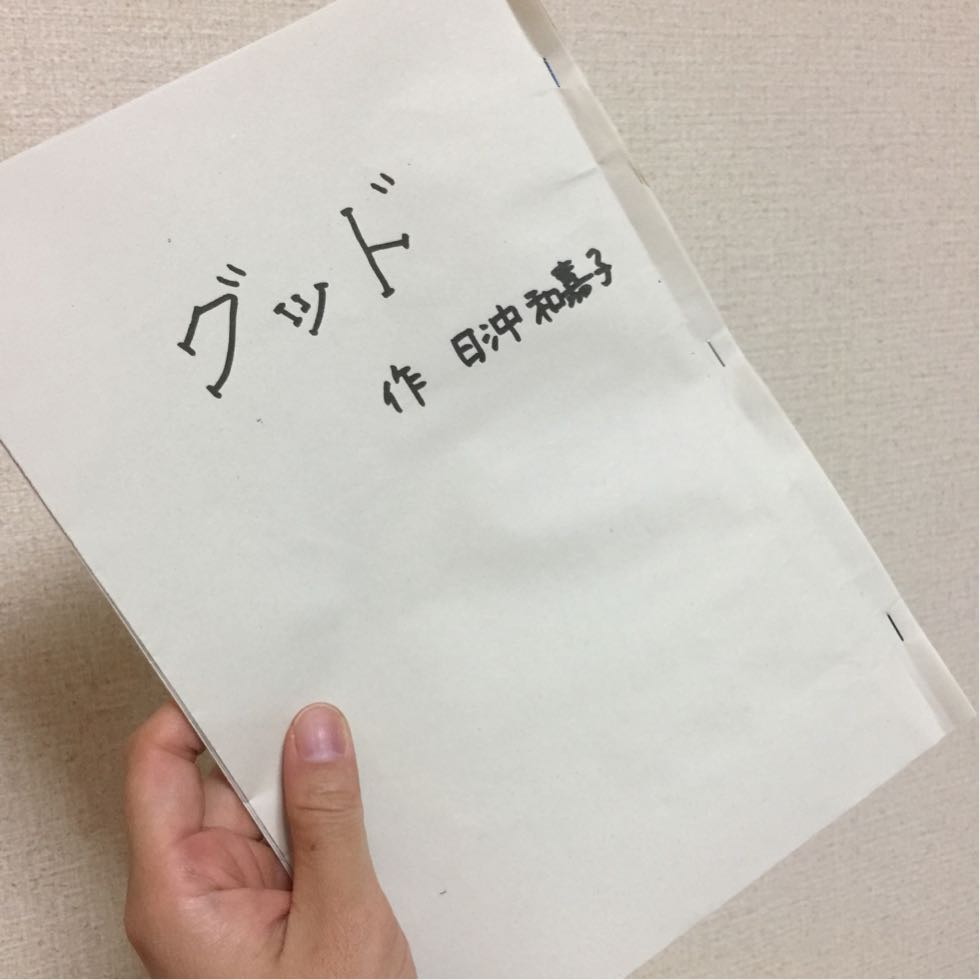 グッド
作 日沖和嘉子